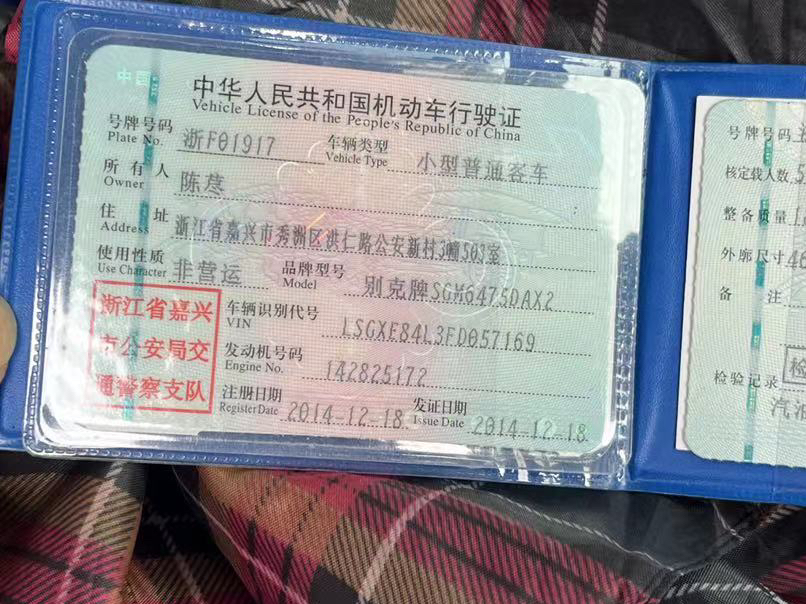 中国
中华人民共和国机动车行驶证
Vehicle License of the People's Republic of China
号牌号码 浙F01917 车辆类型 小型普通客车
Plate No. Vehicle Type
所有人 陈荩
Owner
住址 浙江省嘉兴市秀洲区洪仁路公安新村3幢503室
Address
使用性质 非营运 品牌型号 别克牌SGM6475DAX2
Use Character Model
浙江省嘉兴
市公安局交
通警察支队
车辆识别代号 LSGXE84L3FD057169
VIN
发动机号码 142825172
Engine No.
注册日期 2014-12-18 发证日期 2014-12-18
Register Date Issue Date
号牌号码
核定载人数 5
整备质量
外廓尺寸 46
备注
检验记录
检
汽油